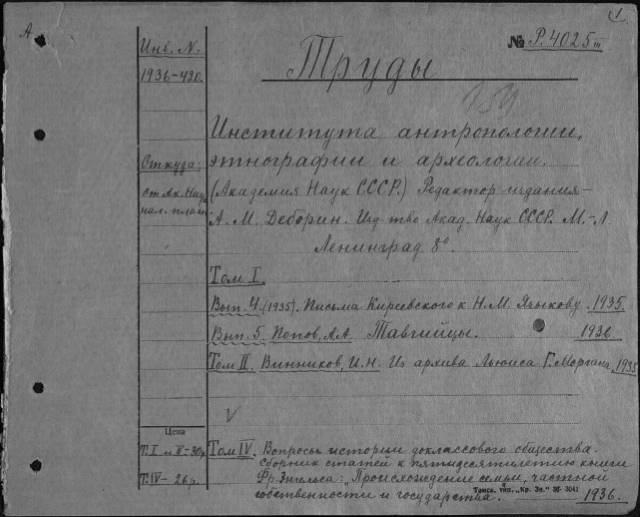 А
1
Инв. N.
1936-420.
№ Р.4025 III
Труды
159
Института антропологии,
Откуда:
этнографии и археологии.
от Ак. Наук
нал. плат.
(Академия Наук СССР.) Редактор издания-
А. М. Деборин. Изд-тво Акад. Наук СССР. М.-Л.
Ленинград 8°.
Том I.
Вып. 4. (1935). Письма Киреевского к Н.М. Языкову. 1935.
Вып. 5. Попов, А.А. Тавгийцы. 1936.
Том II. Винников, И.Н. Из архива Льюиса Г. Моргана. 1935
V
Цена
Т. I и II-30р.
Том IV. Вопросы истории доклассового общества.
Сборник статей к пятидесятилетию книги
Т. IV- 26 р.
Фр. Энгельса: „Происхождение семьи, частной
собственности и государства. 1936.
Томск, тип. „Кр. Зн." Зб- 3041